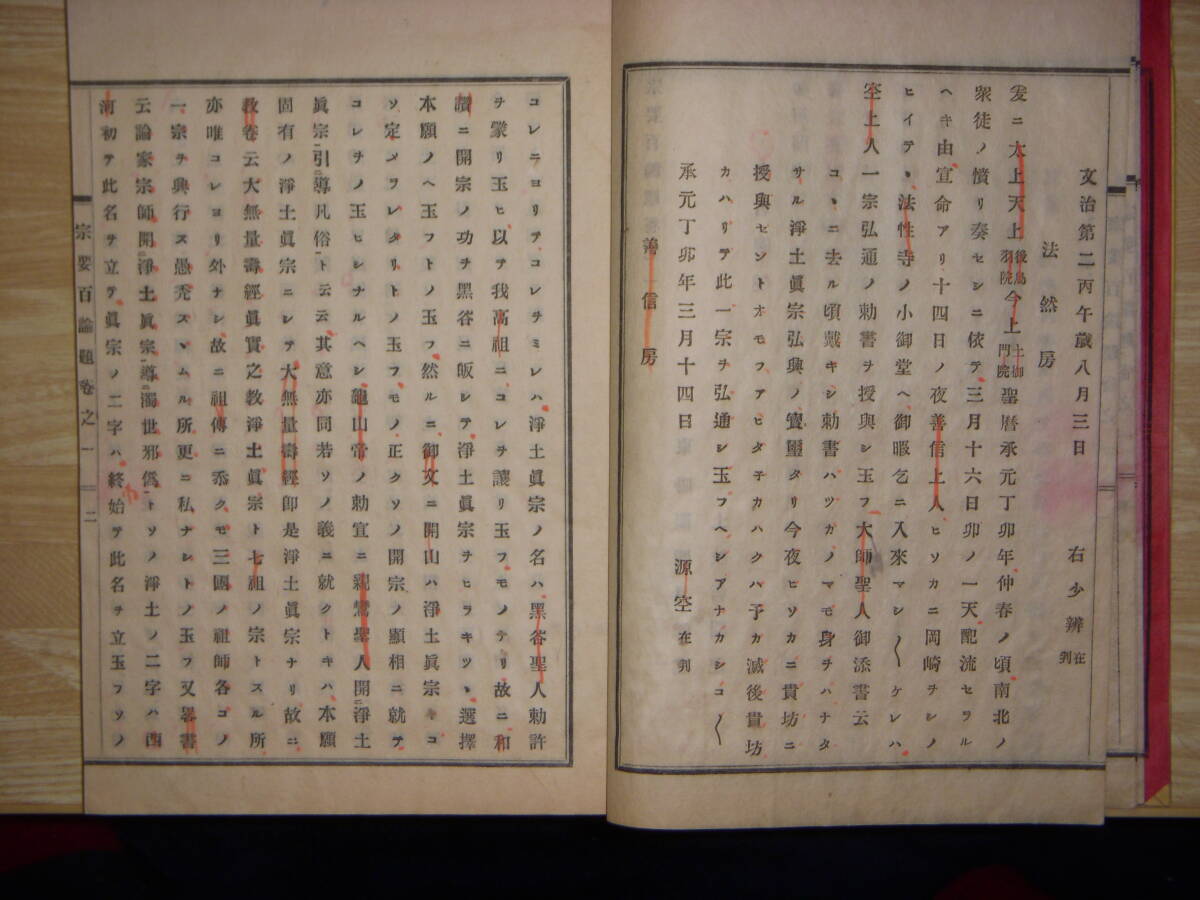 文治第二丙午歲八月三日 右少辨在判
法然房
爰ニ太上天上後鳥羽院今上土御門院聖曆承元丁卯年仲春ノ頃南北ノ
衆徒ノ憤リ奏セシニ依テ三月十六日卯ノ一天配流セラル
ヘキ由宣命アリ十四日ノ夜善信上人ヒソカニ岡崎ヲシノ
ヒイテヽ法性寺ノ小御堂ヘ御暇乞ニ入來マシ〱ケレハ
空上人一宗弘通ノ勅書ヲ授與シ玉フ大師聖人御添書云
コヽニ去ル頃戴キシ勅書ハツカノマモ身ヲハナタ
サル淨土眞宗弘興ノ寶璽タリ今夜ヒソカニ貴坊ニ
授與セントオモフアヒタヲカハクハ予カ滅後貴坊
カハリテ此一宗ヲ弘通シ玉フヘシアナカシコ〱
承元丁卯年三月十四日 源空在判
善信房
コレニヨリテコレヲミレハ淨土眞宗ノ名ハ黑谷聖人勅許
ヲ蒙リ玉ヒ以テ我高祖ニコレヲ讓リ玉フモノナリ故ニ和
讃ニ開宗ノ功ヲ黑谷ニ皈シテ淨土眞宗ヲヒラキツヽ選擇
本願ノヘ玉フトノ玉フ然ルニ御文ニ開山ハ淨土眞宗ヲコ
ソ定メラレタリトノ玉フモノ正クソノ開宗ノ顯相ニ就テ
コレヲノ玉ヒシナルヘシ龜山帝ノ勅宣ニ親鸞聖人開淨土
眞宗引導凡俗ト云云其意亦同若ソノ義ニ就クトキハ本願
固有ノ淨土眞宗ニシテ大無量壽經即是淨土眞宗ナリ故ニ
敎卷云大無量壽經眞實之敎淨土眞宗ト七祖ノ宗トスル所
亦唯コレヨリ外ナシ故ニ祖傳ニ忝クモ三國ノ祖師各コノ
一宗ヲ興行ス愚禿スヽムル所更ニ私ナシトノ玉フ又畧書
云論家宗師開淨土眞宗導濁世邪僞トソノ淨土ノ二字ハ西
河初テ此名ヲ立テ眞宗ノ二字ハ終始テ此名ヲ立玉フソノ
宗要百論題卷之一 二